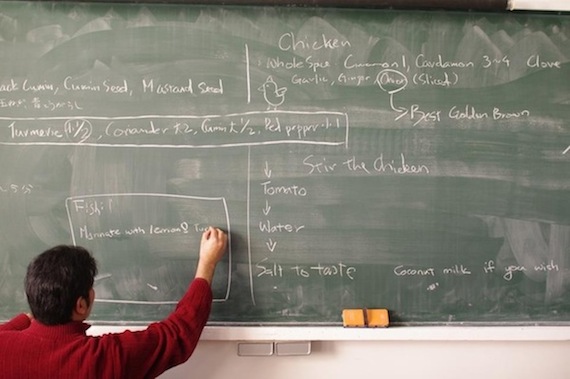 Cumin Seed, Mustard Seed
Turmeric (1½), Coriander Cumin 1/2, Red pepper
Fish:
Marinate with lemon
Chicken
Whole Spice Cinnamon 1, Cardamon 3~4 Clove
Garlic, Ginger, Onion (Sliced)
Golden Brown
Stir the Chicken
↓
Tomato
↓
Water
↓
Salt to taste Coconut milk if you wish